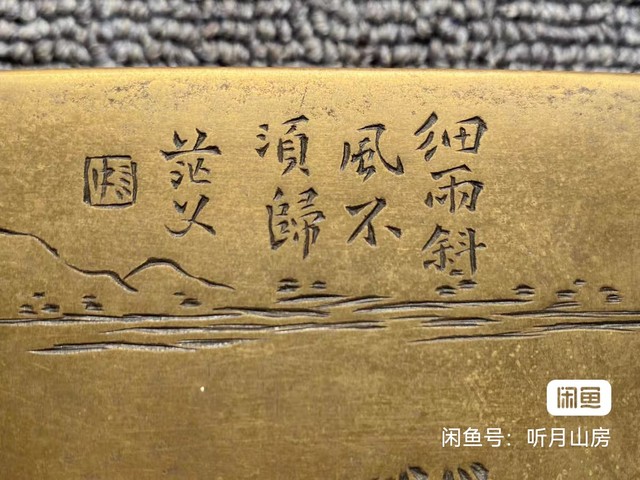 細雨斜
風不
須歸
茫父
闲鱼
闲鱼号：听月山房